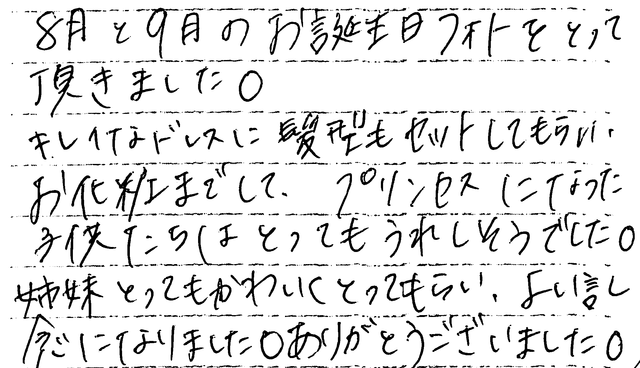 8月と9月のお誕生日フォトをとって
頂きました。
キレイなドレスに髪型もセットしてもらい、
お化粧までして、プリンセスになった
子供たちはとってもうれしそうでした。
姉妹とってもかわいくとってもらい、よい記
念になりました。ありがとうございました。